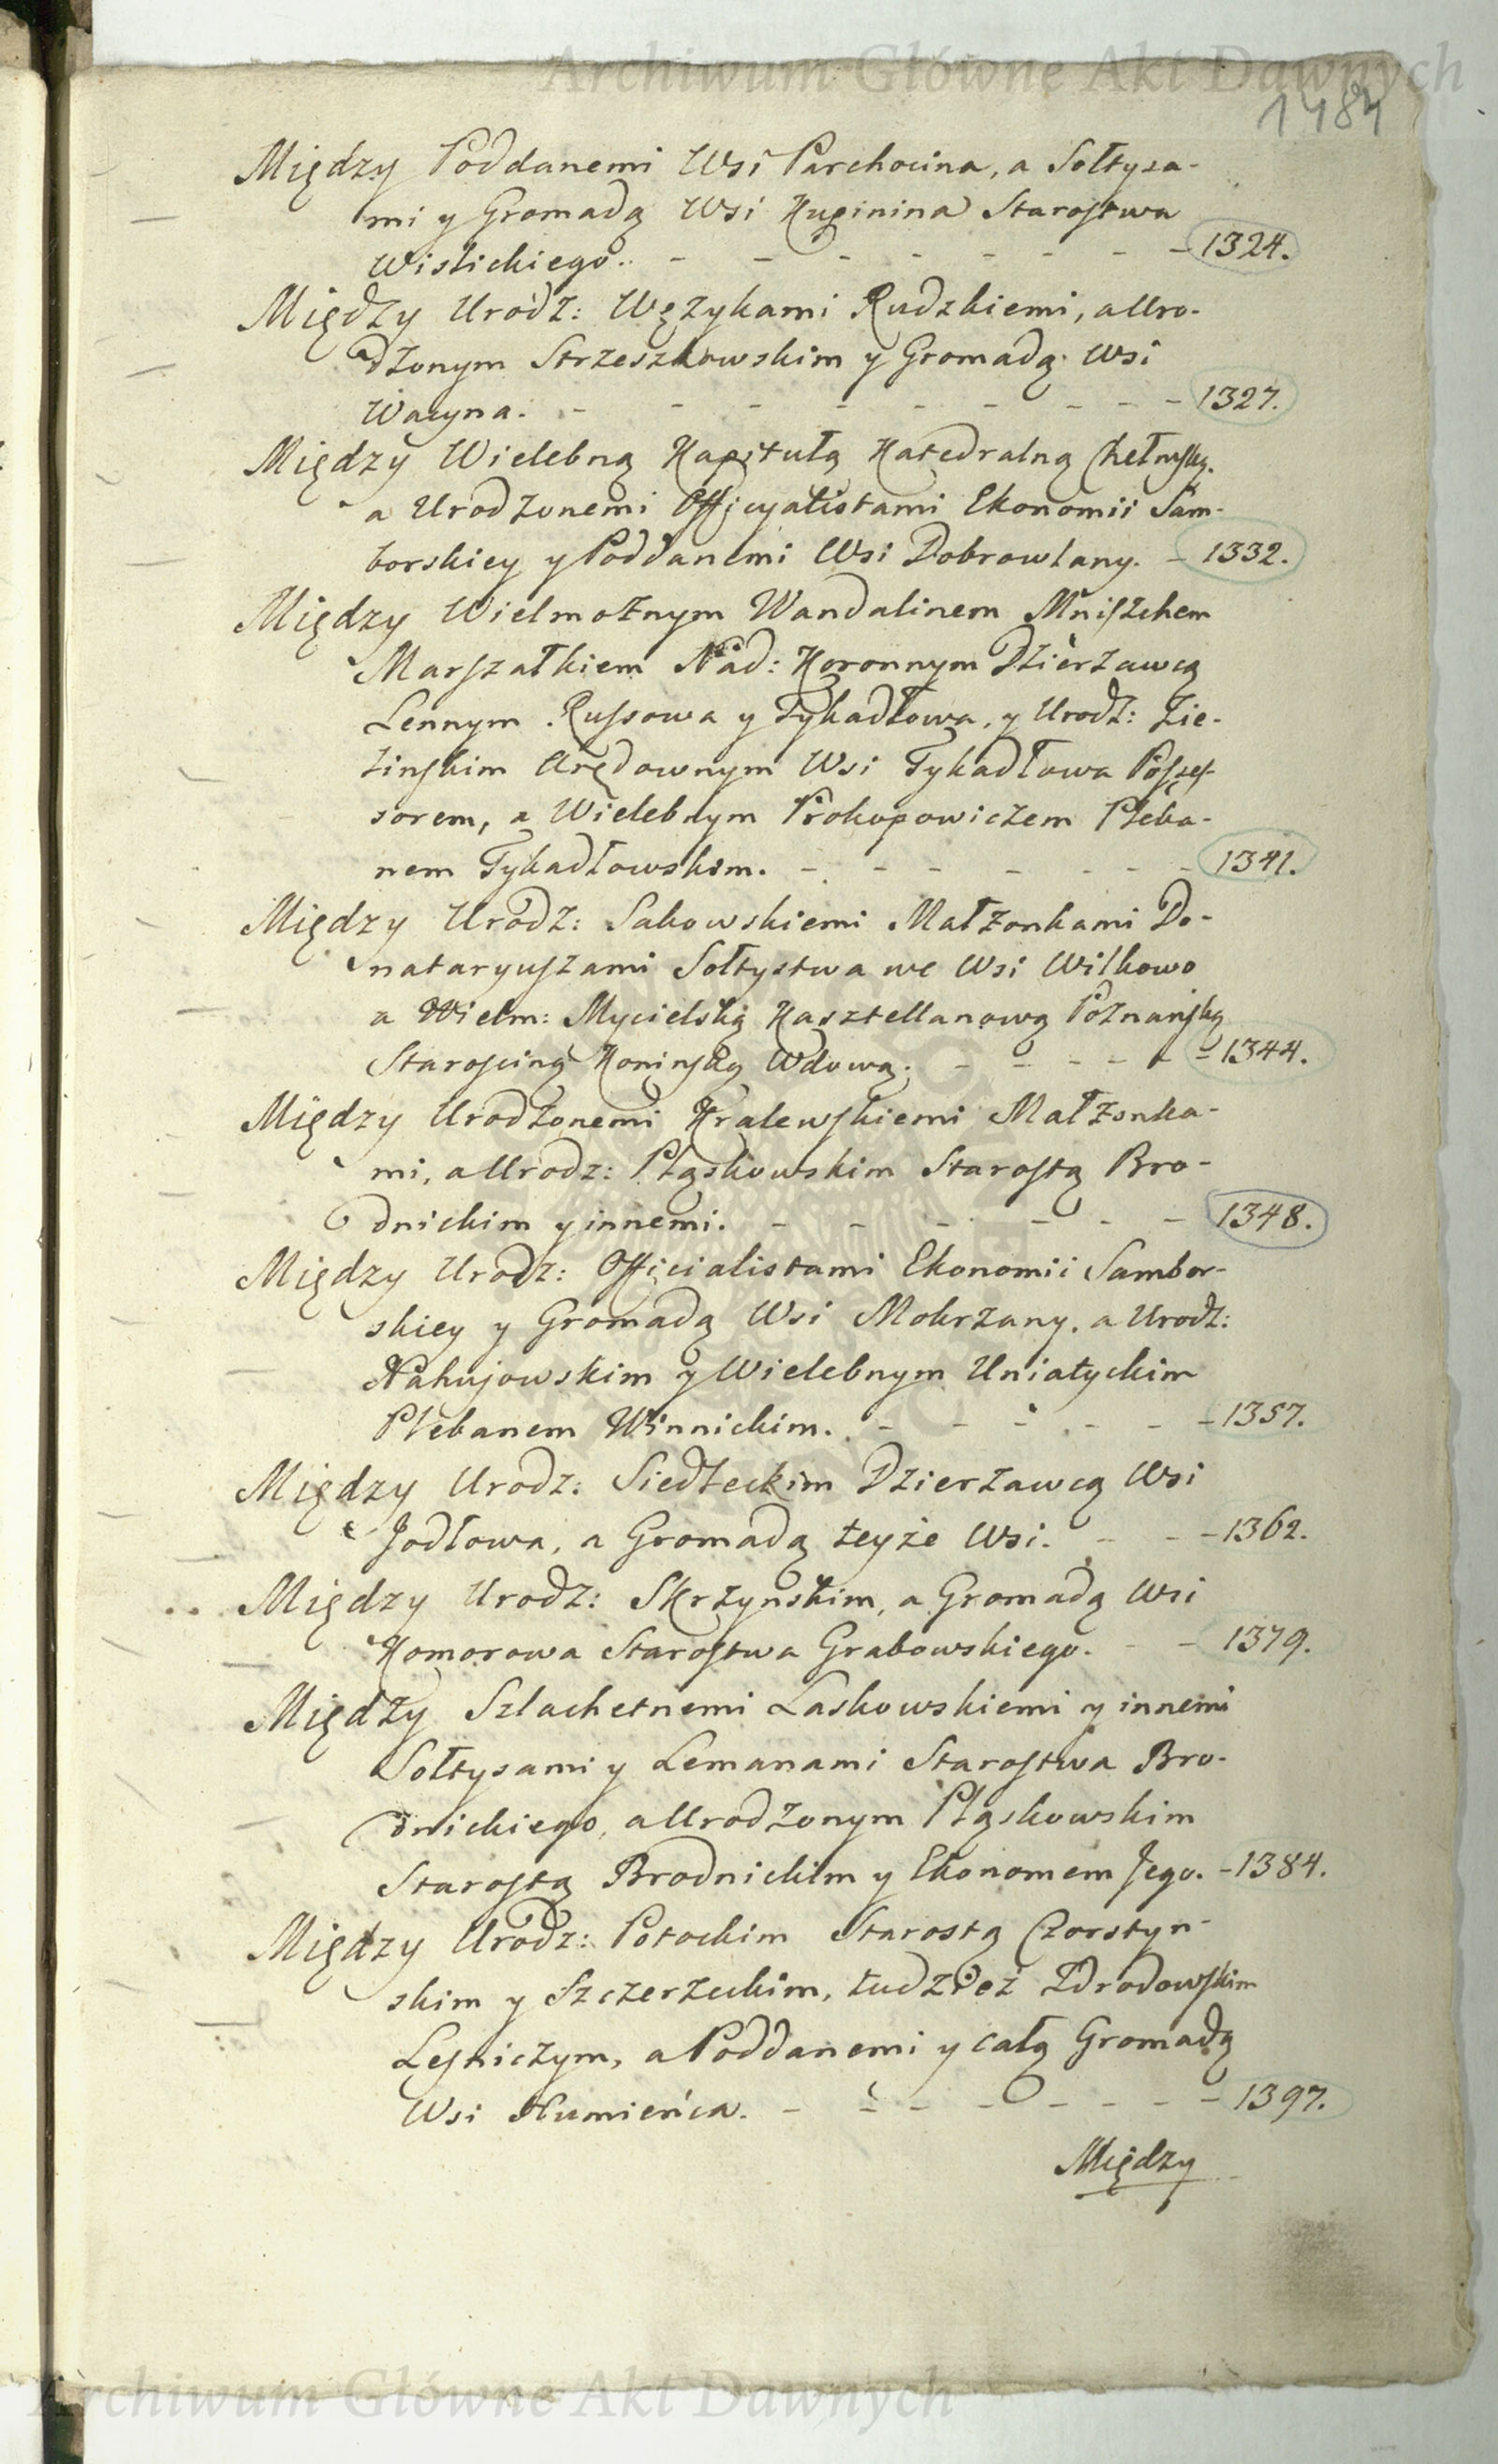 Archiwum Główne Akt Dawnych
1484
Między Poddanemi Wsi Parchocina, a Sołtysa-
mi y Gromadą Wsi Huginina Starostwa
Wislickiego. - - - - - - - 1324.
Między Urodz: Wężykami Rudzkiemi, a Uro-
dzonym Strzeszkowskim y Gromadą Wsi
Wacyna. - - - - - - - - 1327.
Między Wielebną Kapitułą Katedralną Chełmską.
a Urodzonemi Officyalistami Ekonomii Sam-
borskiey y Poddanemi Wsi Dobrowlany. - 1332.
Między Wielmożnym Wandalinem Mniszchem
Marszałkiem Nad: Koronnym Dzierzawcą
Lennym Russowa y Tykadłowa, y Urodz: Zie-
linskim Arędownym Wsi Tykadłowa Posses-
sorem, a Wielebnym Prokopowiczem Pleba-
nem Tykadłowskim. - - - - - - 1341.
Między Urodz: Sakowskiemi Małżonkami Do-
nataryuszami Sołtystwa we Wsi Wilkowo
a Wielm: Mycielską Kasztellanową Poznanską
Staroscing Koninską Wdową. - - - - - 1344.
Między Urodzonemi Kralewskiemi Małżonka-
mi, a Urodz: Pląskowskim Starostą Bro-
dnickim y innemi. - - - - - - 1348.
Między Urodz: Officialistami Ekonomii Sambor-
skiey y Gromadą Wsi Mokrzany. a Urodz:
Nahujowskim y Wielebnym Uniatyckim
Plebanem Winnickim. - - - - - 1357.
Między Urodz: Siedleckim Dzierzawcą Wsi
Jodłowa, a Gromadą teyże Wsi. - - - 1362.
Między Urodz: Skrzynskim, a Gromadą Wsi
Komorowa Starostwa Grabowskiego. - - 1379.
Między Szlachetnemi Laskowskiemi y innemi
Sołtysami y Lemanami Starostwa Bro-
dnickiego, a Urodzonym Pląskowskim
Starostą Brodnickim y Ekonomem Jego. - 1384.
Między Urodz: Potockim Starostą Czorstyn-
skim y Szczerzeckim, tudzież Zdrodowskim
Lesniczym, a Poddanemi y całą Gromadą
Wsi Humieńca. - - - - - - - 1397.
Między
Archiwum Główne Akt Dawnych